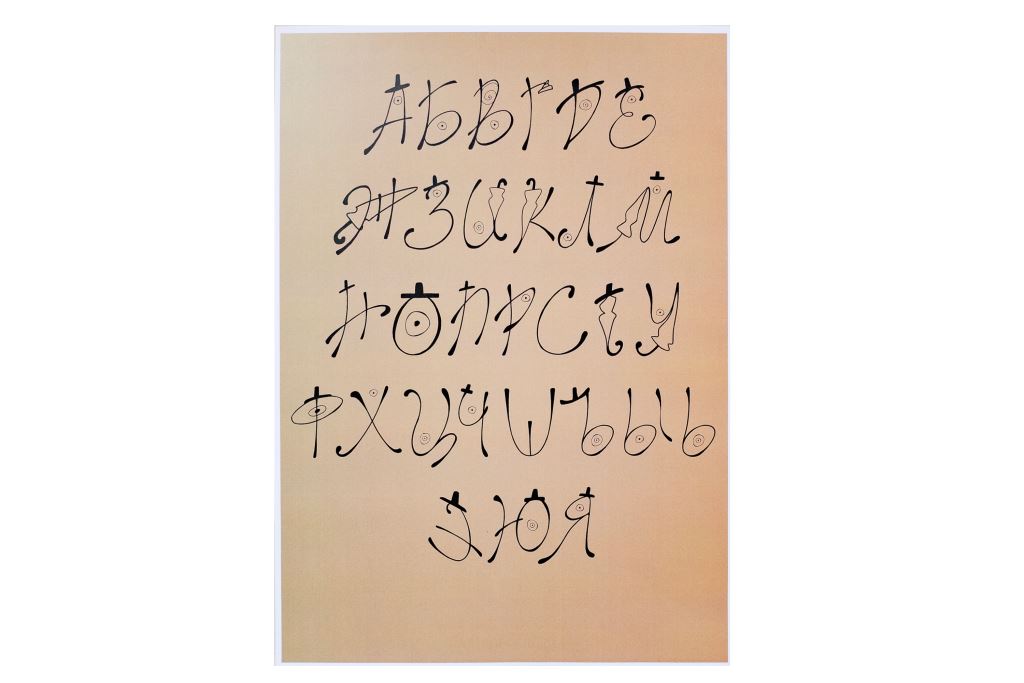 АБВГДЕ
ЖЗИКЛМ
НОПРСТУ
ФХЦЧШЪЫЬ
ЭЮЯ